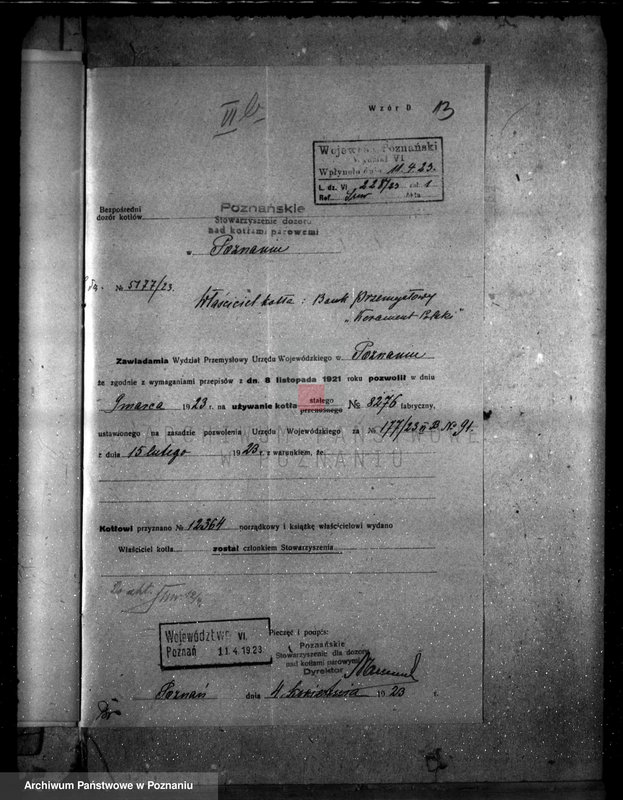 VI b
Wzór D. 13
Poznański
VI
Wpłynęło dnia 11.4.23.
L. dz. VI 228/23 zał. 1
Ref.
Bezpośredni
dozór kotłów
Poznańskie
Stowarzyszenie dozoru
nad kotłami parowemi
w Poznaniu
№ 5177/23.
Właściciel kotła: Bank Przemysłowy
Zawiadamia Wydział Przemysłowy Urzędu Wojewódzkiego w Poznaniu
że zgodnie z wymaganiami przepisów z dn. 8 listopada 1921 roku pozwolił w dniu
9 marca 1923 r. na używanie kotła stałego przenośnego № 8276 fabryczny,
ustawionego na zasadzie pozwolenia Urzędu Wojewódzkiego za № 177/23 № 91.
z dnia 15 lutego 1923 r. z warunkiem, że
ARCHIWUM PAŃSTWOWE
W POZNANIU
Kotłowi przyznano № 12364 porządkowy i książkę właścicielowi wydano
Właściciel kotła został członkiem Stowarzyszenia
Województwo VI.
Poznań 11.4.1923
Pieczęć i podpis:
Poznańskie
Stowarzyszenie dla dozoru
nad kotłami parowymi
Dyrektor
Poznań dnia 4. kwietnia 1923 r.
Archiwum Państwowe w Poznaniu